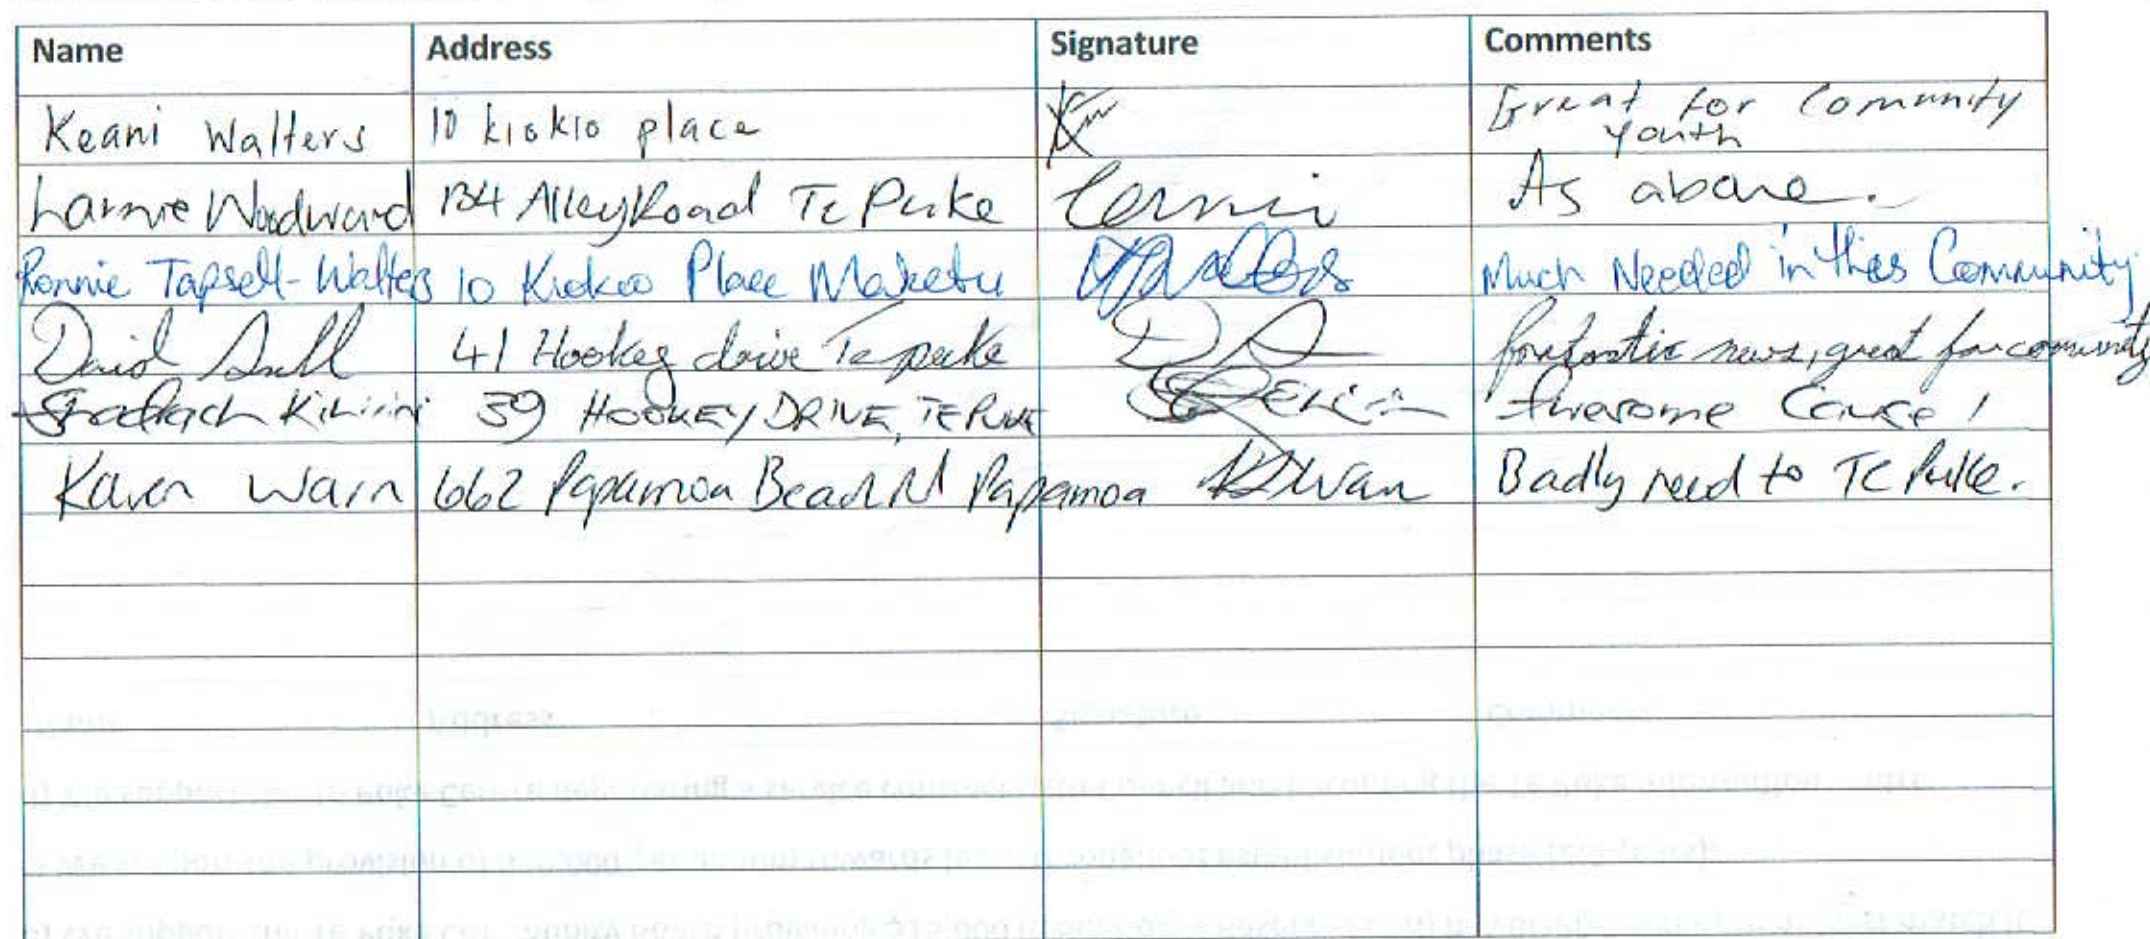 Name Address Signature Comments
Keani Walters 10 kiokio place Great for Community
Youth
Larnie Woodward 134 Alley Road Te Puke As above.
Ronnie Tapsell-Walters 10 Kiokio Place Maketu Much Needed in this Community
David 41 Hookey drive Te puke fantastic news, great for community
Shadrach Kihirini 39 HOOKEY DRIVE, TE PUKE Awesome Cause!
Karen Warn 662 Papamoa Beach Rd Papamoa Badly need to Te Puke.